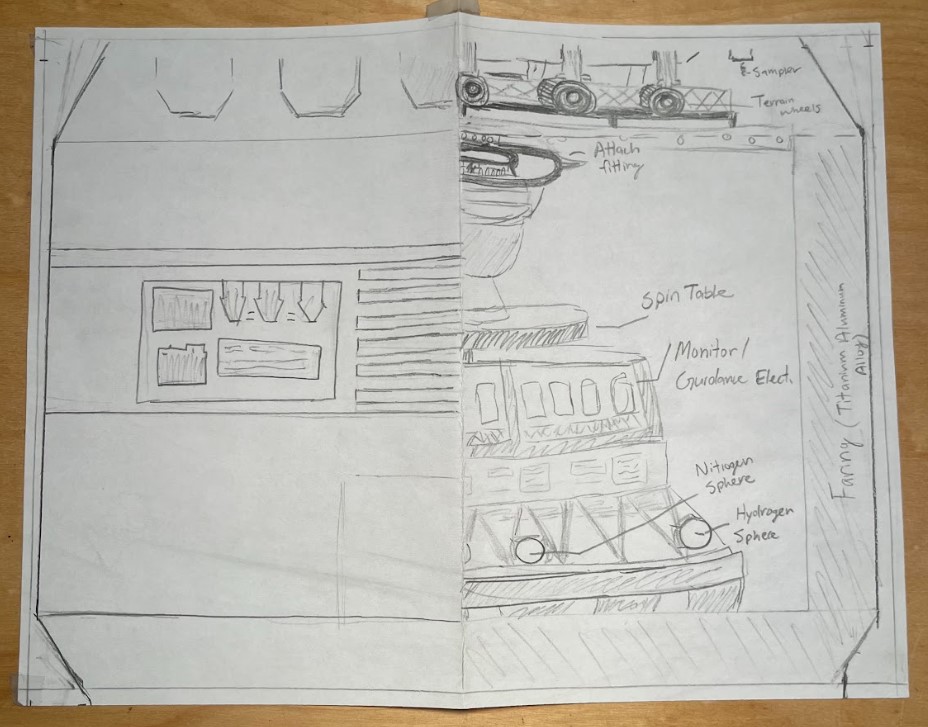 E-Sampler
Terrain
wheels
Attach
fitting
Spin Table
Monitor/
Guidance Elect.
Nitrogen
Sphere
Hydrogen
Sphere
Faring (Titanium Aluminum
Alloy)